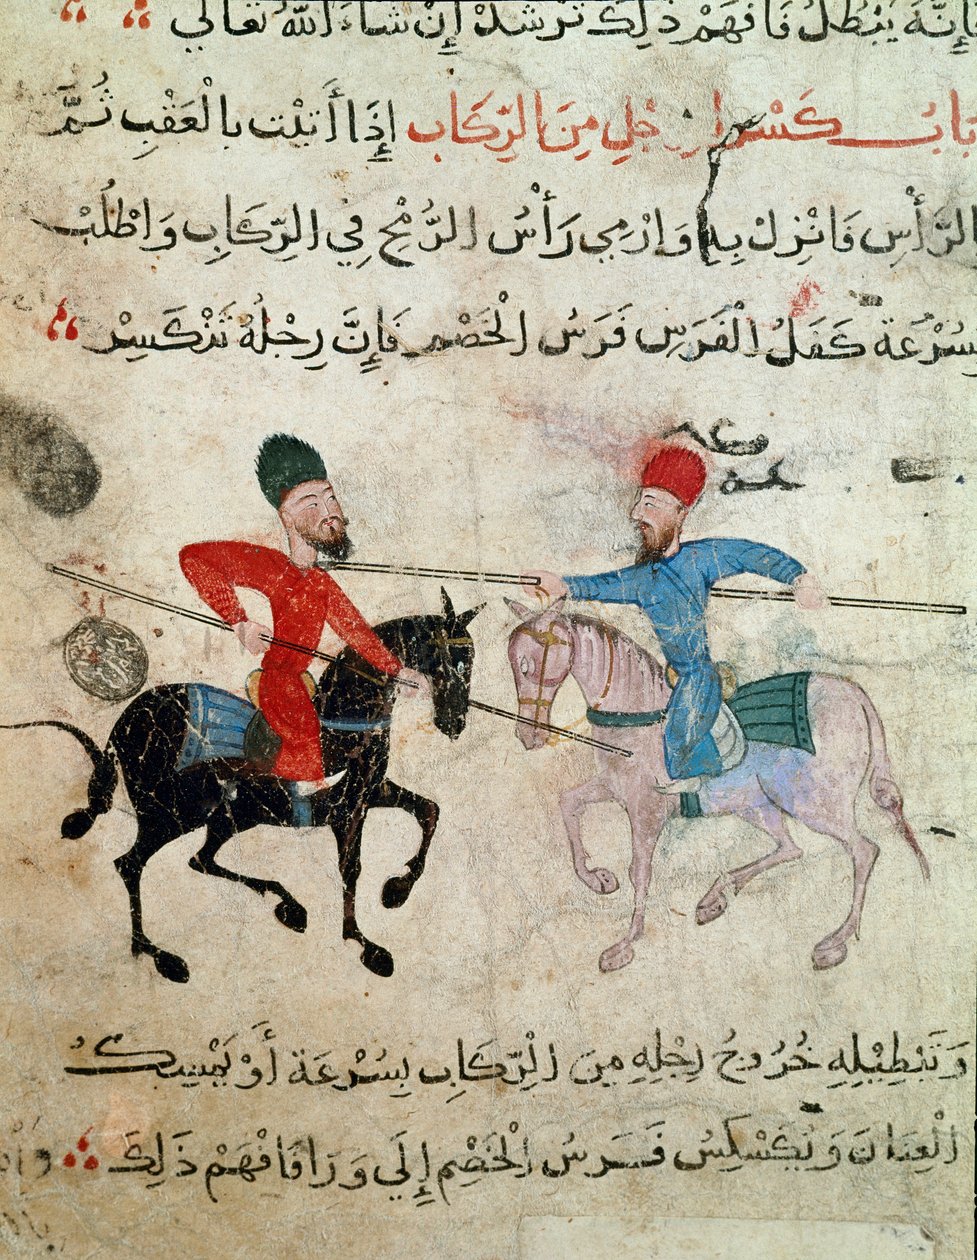 فَإِنَّهُ يَبْطُلُ فَافْهَمْ ذَلِكَ تَرْشُدْ إِنْ شَاءَ اللهُ تَعَالَي
بَابُ كَسْرِ الرِجْلِ مِنَ الرِّكَابِ إِذَا أَتَيْتَ بِالْعَقْبِ ثُمَّ
الرَّأْسِ فَانْزِلْ بِهِ وَارْمِي رَأْسُ الرُّمْحِ فِي الرِّكَابِ وَاطْلُبْ
بِسُرْعَةٍ كَفَلُ الْفَرَسِ فَرَسُ الْخَصْمِ فَإِنَّ رِجْلَهُ تَنْكَسِرْ
وَتَبْطِيْلِهِ خُرُوجُ رِجْلِهِ مِنَ الرِّكَابِ بِسُرْعَةٍ أَوْ يَمْسِكُ
الْعِنَانَ وَيُكَسْكِسُ فَرَسُ الْخَصْمِ إِلَي وَرَا فَافْهَمْ ذَلِكَ